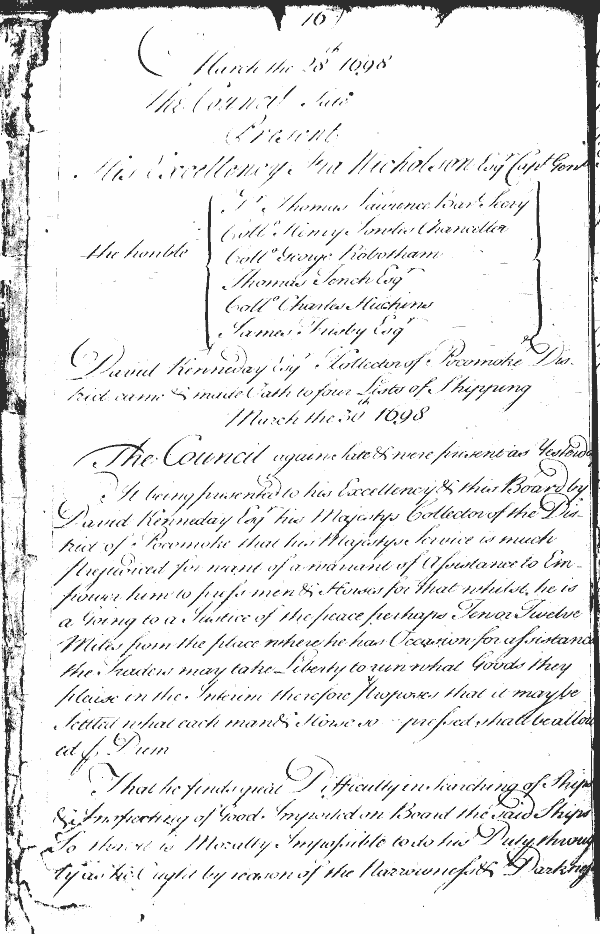 16
March the 28th 1698
The Council Sate
Present
His Excellency Fra Nicholson Esqr Capt Genll
Sr Thomas Lawrence Barr Secry
Coll.o Henry Jowles Chancellor
the honble Coll.o George Robotham
Thomas Tench Esqr
Coll.o Charles Hutchins
James Frisby Esqr
David Kenneday Esqr Collector of Pocomoke Dis-
trict came & made Oath to four Lists of Shipping
March the 30th 1698
The Council again sate & were present as Yesterday
It being presented to his Excellency & this Board by
David Kenneday Esqr his Majestys Collector of the Dis-
trict of Pocomoke that his Majestys Service is much
Prejudiced for want of a warrant of Assistance to Em-
power him to press men & Horses for that whilst he is
a Going to a Justice of the peace perhaps Ten or Twelve
Miles from the place where he has Occasion for assistance
the Traders may take Liberty to run what Goods they
please in the Interim therefore Proposes that it may be
Settled what each man & Horse so pressed shall be allow
ed p. Diem
That he finds great Difficulty in Searching of Ships
& Inspecting of Goods Imported on Board the said Ships
So that it is Morally Impossible to do his Duty throug
ly as he Ought by reason of the Narrowness & Darkness